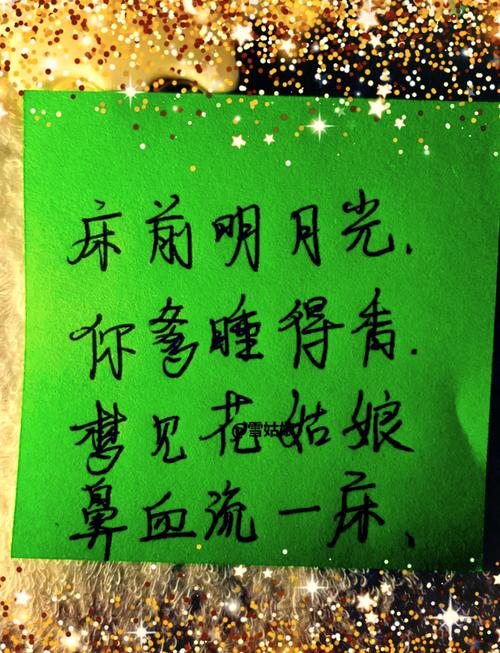 床前明月光.
你爹睡得香.
梦见花姑娘
鼻血流一床、
@雪姑娘